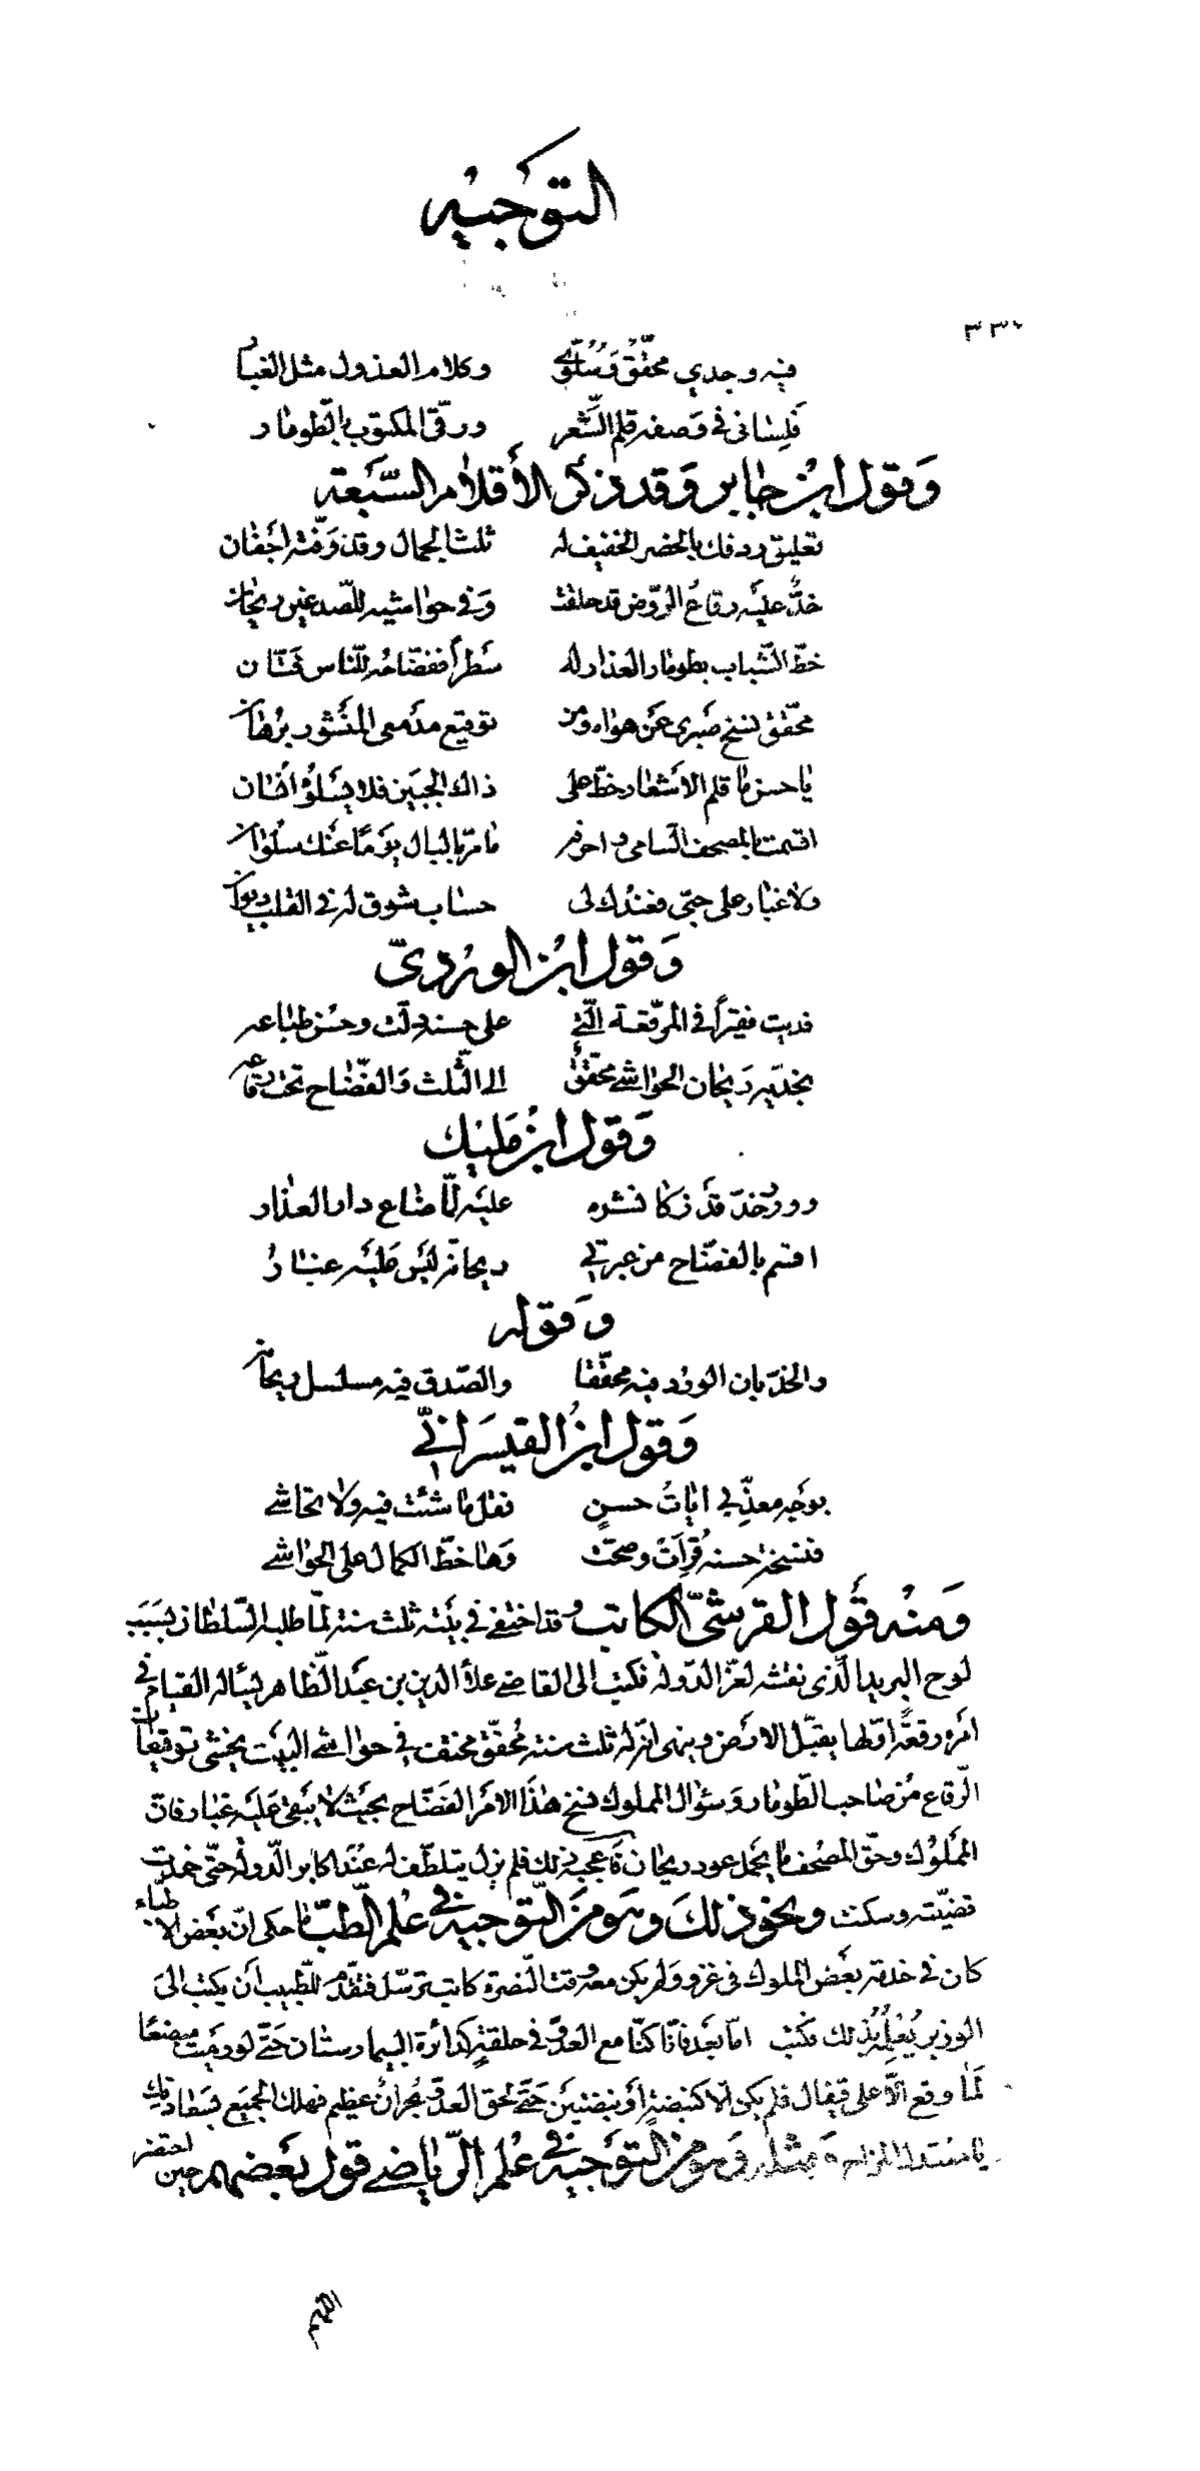 التوجيه
فيه وجدي محقق وسلوّي وكلام العذول مثل الغبار
فلساني في وصفه قلم الشعر ورقى المكتوب بالطومار
وقول ابن جابر وقد ذكر الأقلام السبعة
تعليق ردفك بالخصر الخفيف له ثلث الجمال وقد وفته اجفان
خدّ عليه رقاع الروض قد جعلت وفي حواشيه للصدغين ريحان
خطّ الشّباب بطومار العذار له سطراً ففضّاحه للناس فتّان
محقّق نسخ صبرى عن هواه ومن توقيع مدمعى المنثور برهان
يا حسن ما قلم الأشعار خطّ على ذاك الجبين فلا يسلوه انسان
اقسمت بالمصحف السامى واحرفه ما مر بالبال يوماً عنك سلوان
ولا غبار على حبّى فعندك لى حساب شوق له في القلب ديوان
وقول ابن الوردىّ
فديت فقيراً في المرقعة التي على حسن دلّت وحسن طباعه
بخديه ريحان الحواشي محقق الى الثلث والفضّاح تحت رقاعه
وقول ابن مليك
وورد خدّ قد زكا نشره عليه لمّا ضاع دار العذار
اقسم بالفضّاح من عبرتي ريحانه ليس عليه غبار
وقوله
والخدّ بان الورد فيه محققا والصّدق فيه مسلسل ريحانه
وقول ابن القيسراني
بوجه معذّبي ايات حسن فقل ما شئت فيه ولا تحاشي
فنسخة حسنه قرأت وصحّت وها خطّ الكمال على الحواشي
ومنه قول القرشىّ الكاتب وقد اختفى في بيته ثلث سنة لمّا طلبه السّلطان بسبب
لوح البريد الّذى نقشه لعز الدّولة فكتب الى القاضي علاء الدين بن عبد الظاهر يسأله القيام في
أمره رقعةً اوّلها يقبّل الارض وينهى انّه له ثلث سنة محقّق مختف في حواشي البيت يخشى توقيعات
الرّقاع من صاحب الطّومار وسؤال المملوك نسخ هذا الامر الفضّاح بحيث لا يبقى عليه غبار فان
المملوك وحقّ المصحف ما يحمل عود ريحان فأعجبه ذلك فلم يزل يتلطّف له عند اكابر الدّولة حتّى خمدت
قضيّته وسكنت ونحو ذلك وهو من التّوجيه في علم الطّبّ ما حكى انّ بعض الاطباء
كان في خدمة بعض الملوك في غزو ولم يكن معه وقت النّصرة كاتب ترسّل فتقدّم للطّبيب أن يكتب الى
الوزير يعلمه بذلك فكتب امّا بعد فانّا كنّا مع العدوّ في حلقةٍ كدائرة البيمارستان حتّى لو رميت مبضعًا
لما وقع الاّ على قيفال فلم يكن الّا كنبضةٍ أو نبضتين حتّى لحق العدوّ بحرانٌ عظيم فهلك الجميع بسعادتك
يا معتدل المزاج ومثله وهو من التّوجيه في علم الرّياضي قول بعضهم حين احتضر
اللهم